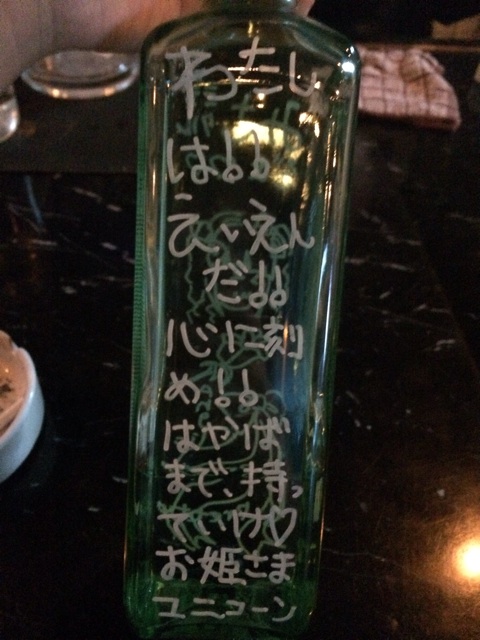 わたし
は!!
えいえん
だ!!
心に刻
め!!
はやば
まで、持っ
ていけ♡
お姫さま
ユニコーン